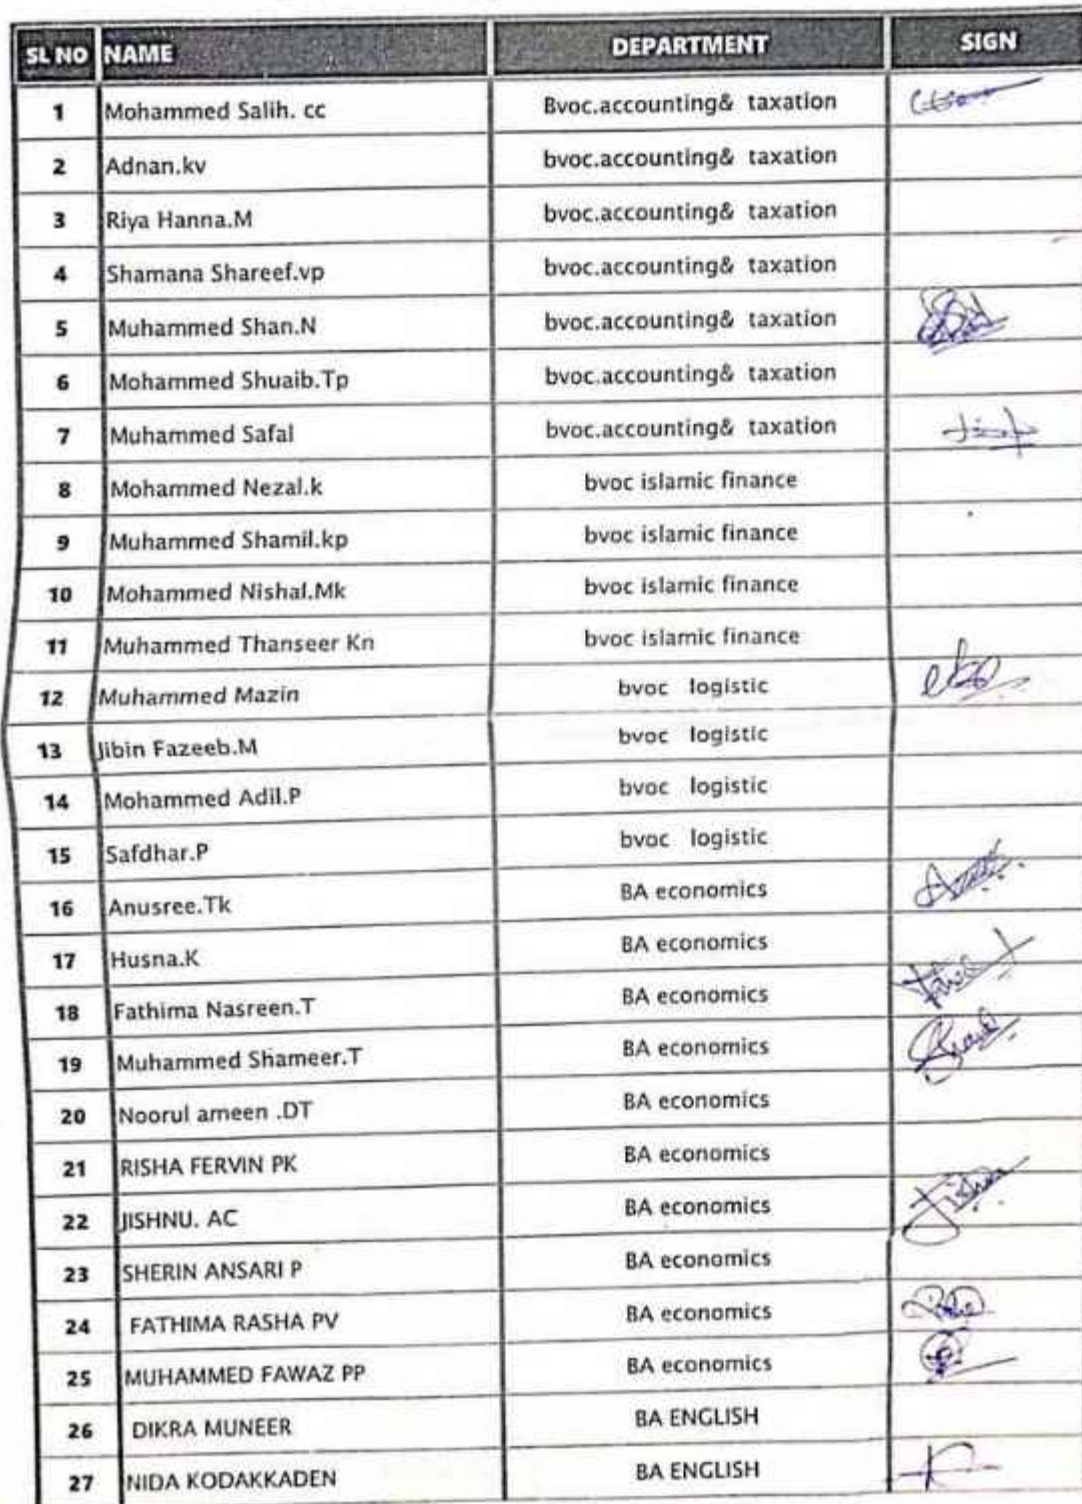 SL NO NAME DEPARTMENT SIGN
1 Mohammed Salih. cc Bvoc.accounting& taxation
2 Adnan.kv bvoc.accounting& taxation
3 Riya Hanna.M bvoc.accounting& taxation
4 Shamana Shareef.vp bvoc.accounting& taxation
5 Muhammed Shan.N bvoc.accounting& taxation
6 Mohammed Shuaib.Tp bvoc.accounting& taxation
7 Muhammed Safal bvoc.accounting& taxation
8 Mohammed Nezal.k bvoc islamic finance
9 Muhammed Shamil.kp bvoc islamic finance
10 Mohammed Nishal.Mk bvoc islamic finance
11 Muhammed Thanseer Kn bvoc islamic finance
12 Muhammed Mazin bvoc logistic
13 Jibin Fazeeb.M bvoc logistic
14 Mohammed Adil.P bvoc logistic
15 Safdhar.P bvoc logistic
16 Anusree.Tk BA economics
17 Husna.K BA economics
18 Fathima Nasreen.T BA economics
19 Muhammed Shameer.T BA economics
20 Noorul ameen .DT BA economics
21 RISHA FERVIN PK BA economics
22 JISHNU. AC BA economics
23 SHERIN ANSARI P BA economics
24 FATHIMA RASHA PV BA economics
25 MUHAMMED FAWAZ PP BA economics
26 DIKRA MUNEER BA ENGLISH
27 NIDA KODAKKADEN BA ENGLISH